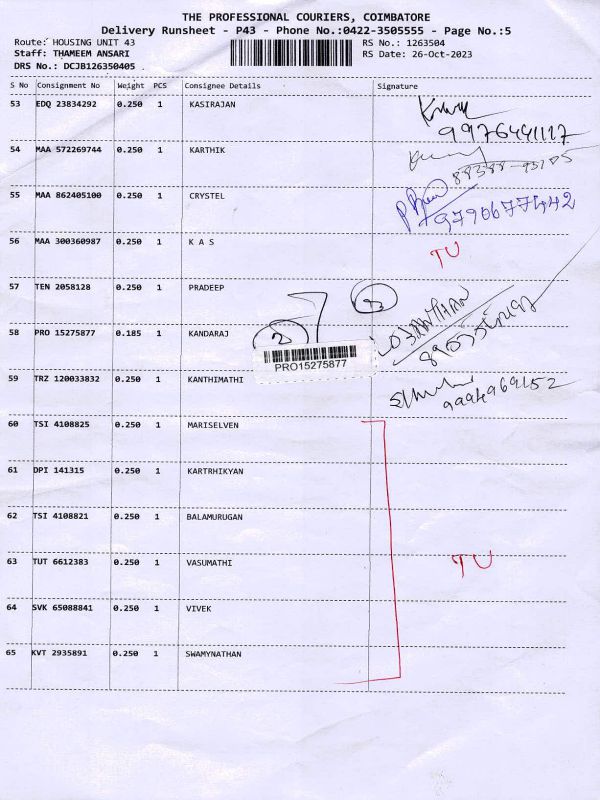 THE PROFESSIONAL COURIERS, COIMBATORE
Delivery Runsheet - P43 - Phone No.:0422-3505555 - Page No.:5
Route: HOUSING UNIT 43 RS No.: 1263504
Staff: THAMEEM ANSARI RS Date: 26-Oct-2023
DRS No.: DCJB126350405
S No Consignment No Weight PCS Consignee Details Signature
53 EDQ 23834292 0.250 1 KASIRAJAN
9976441117
54 MAA 572269744 0.250 1 KARTHIK
55 MAA 862405100 0.250 1 CRYSTEL
9790677442
56 MAA 300360987 0.250 1 K A S TU
57 TEN 2058128 0.250 1 PRADEEP
58 PRO 15275877 0.185 1 KANDARAJ
PRO15275877
59 TRZ 120033832 0.250 1 KANTHIMATHI
9994969152
60 TSI 4108825 0.250 1 MARISELVEN
61 DPI 141315 0.250 1 KARTRHIKYAN
62 TSI 4108821 0.250 1 BALAMURUGAN
63 TUT 6612383 0.250 1 VASUMATHI TU
64 SVK 65088841 0.250 1 VIVEK
65 KVT 2935891 0.250 1 SWAMYNATHAN